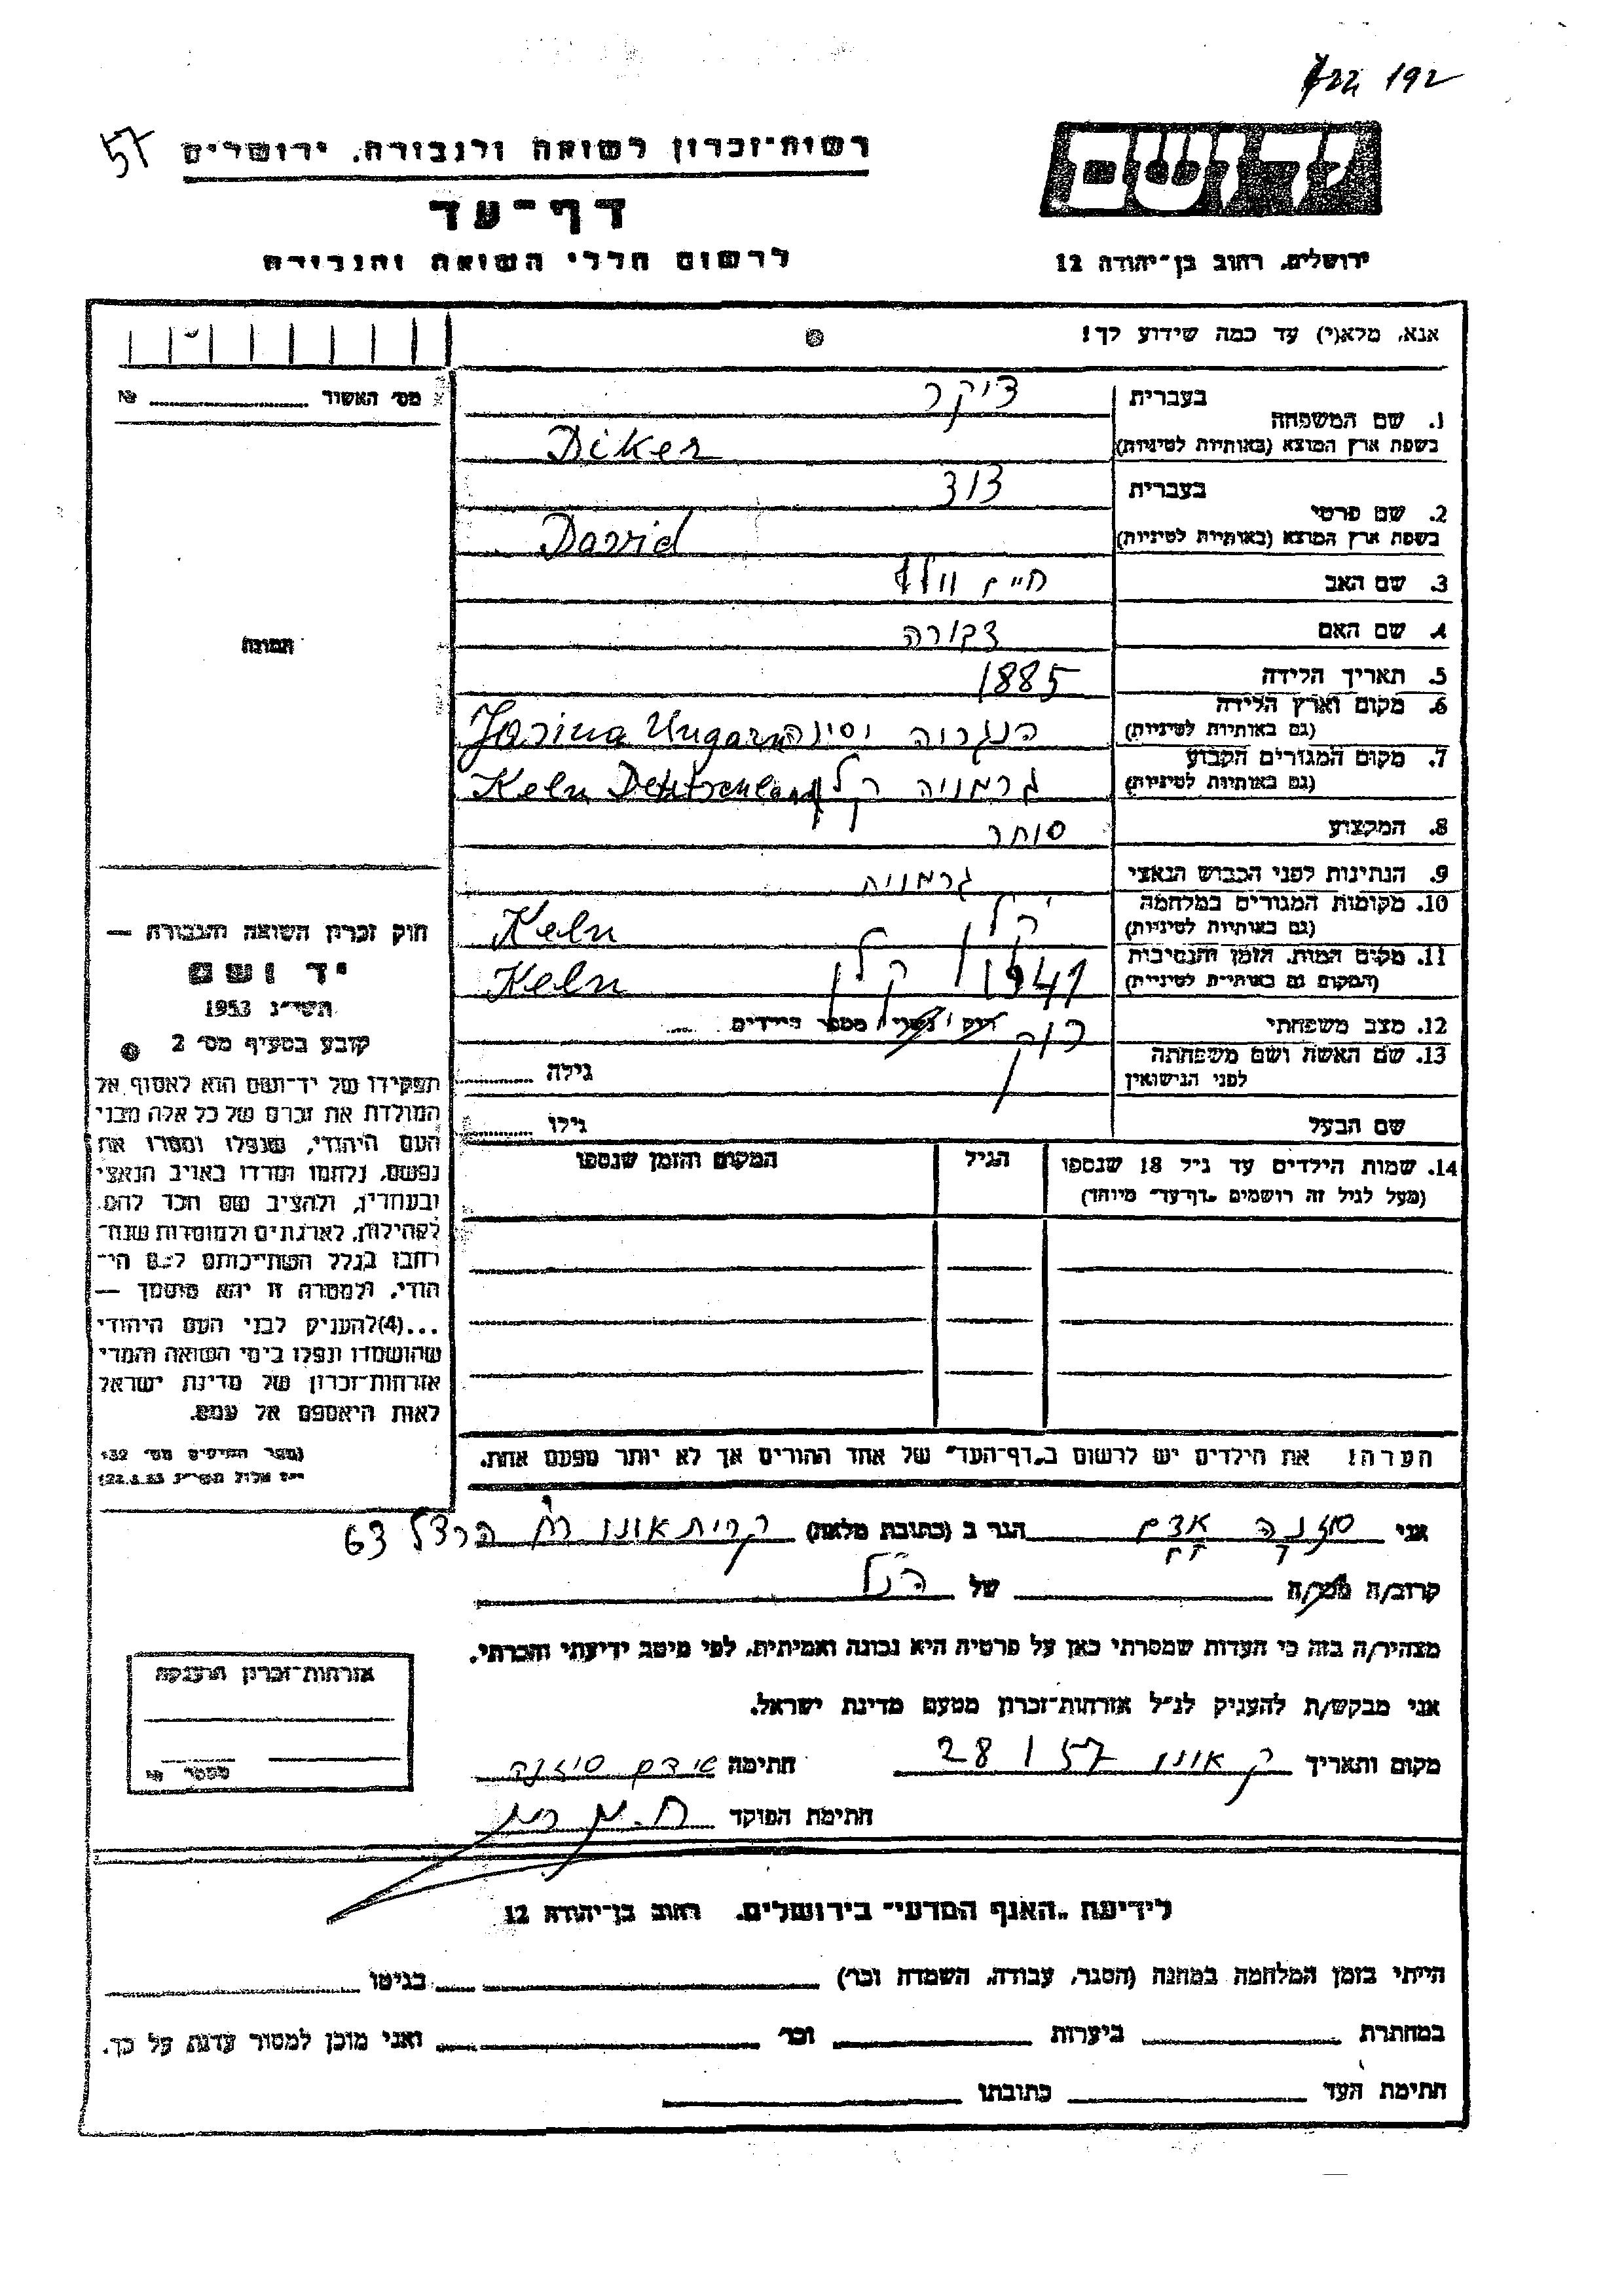 192
57
רשות־זכרון לשואה ולגבורה, ירושלים
יד ושם
דף־עד
לרשום חללי השואה והגבורה
ירושלים, רחוב בן־יהודה 12
אנא, מלא(י) עד כמה שידוע לך!
מס׳ האשור
1. שם המשפחה
בעברית דיקר
בשפת ארץ המוצא (באותיות לטיניות) Diker
2. שם פרטי
בעברית דוד
בשפת ארץ המוצא (באותיות לטיניות) David
3. שם האב חיים וולף
4. שם האם דבורה
5. תאריך הלידה 1885
6. מקום וארץ הלידה (גם באותיות לטיניות) הנגריה יסינה Jasina Ungarn
7. מקום המגורים הקבוע (גם באותיות לטיניות) גרמניה קלן Keln Deutschland
8. המקצוע סוחר
9. הנתינות לפני הכבוש הנאצי גרמניה
10. מקומות המגורים במלחמה (גם באותיות לטיניות) קלן Keln
11. מקום המות, הזמן והנסיבות (המקום גם באותיות לטיניות) 1941 קלן Keln
12. מצב משפחתי רוק / נשוי / מספר הילדים
13. שם האשה ושם משפחתה לפני הנישואין
גילה
שם הבעל
גילו
תמונה
חוק זכרון השואה והגבורה —
יד ושם
תשי״ג 1953
קובע בסעיף מס׳ 2
תפקידו של יד־ושם הוא לאסוף אל
המולדת את זכרם של כל אלה מבני
העם היהודי, שנפלו ומסרו את
נפשם, נלחמו ומרדו באויב הנאצי
ובעוזריו, ולהציב שם וזכר להם,
לקהילות, לארגונים ולמוסדות שנח־
רבו בגלל השתייכותם לעם הי־
הודי, ולמטרה זו יהא מוסמך —
...(4) להעניק לבני העם היהודי
שהושמדו ונפלו בימי השואה והמרי
אזרחות־זכרון של מדינת ישראל
לאות היאספם אל עמם.
(ספר החוקים מס׳ 132
י״ז אלול תשי״ג 28.8.53)
14. שמות הילדים עד גיל 18 שנספו
(מעל לגיל זה רושמים „דף־עד״ מיוחד)
הגיל
המקום והזמן שנספו
הערה! את הילדים יש לרשום ב„דף־העד״ של אחד ההורים אך לא יותר מפעם אחת.
אני הגר ב (כתובת מלאה) קרית אונו רח׳ הרצל 63
קרוב/ה מכר/ה של הנ״ל
מצהיר/ה בזה כי העדות שמסרתי כאן על פרטיה היא נכונה ואמיתית, לפי מיטב ידיעתי והכרתי.
אני מבקש/ת להעניק לנ״ל אזרחות־זכרון מטעם מדינת ישראל.
מקום ותאריך ק אונו 28 1 57 חתימה
חתימת הפוקד
אזרחות־זכרון הוענקה
מספר
לידיעת „האגף המדעי״ בירושלים, רחוב בן־יהודה 12
הייתי בזמן המלחמה במחנה (הסגר, עבודה, השמדה וכו׳) בגיטו
במחתרת ביערות וכו׳ ואני מוכן למסור עדות על כך.
חתימת העד כתובתו